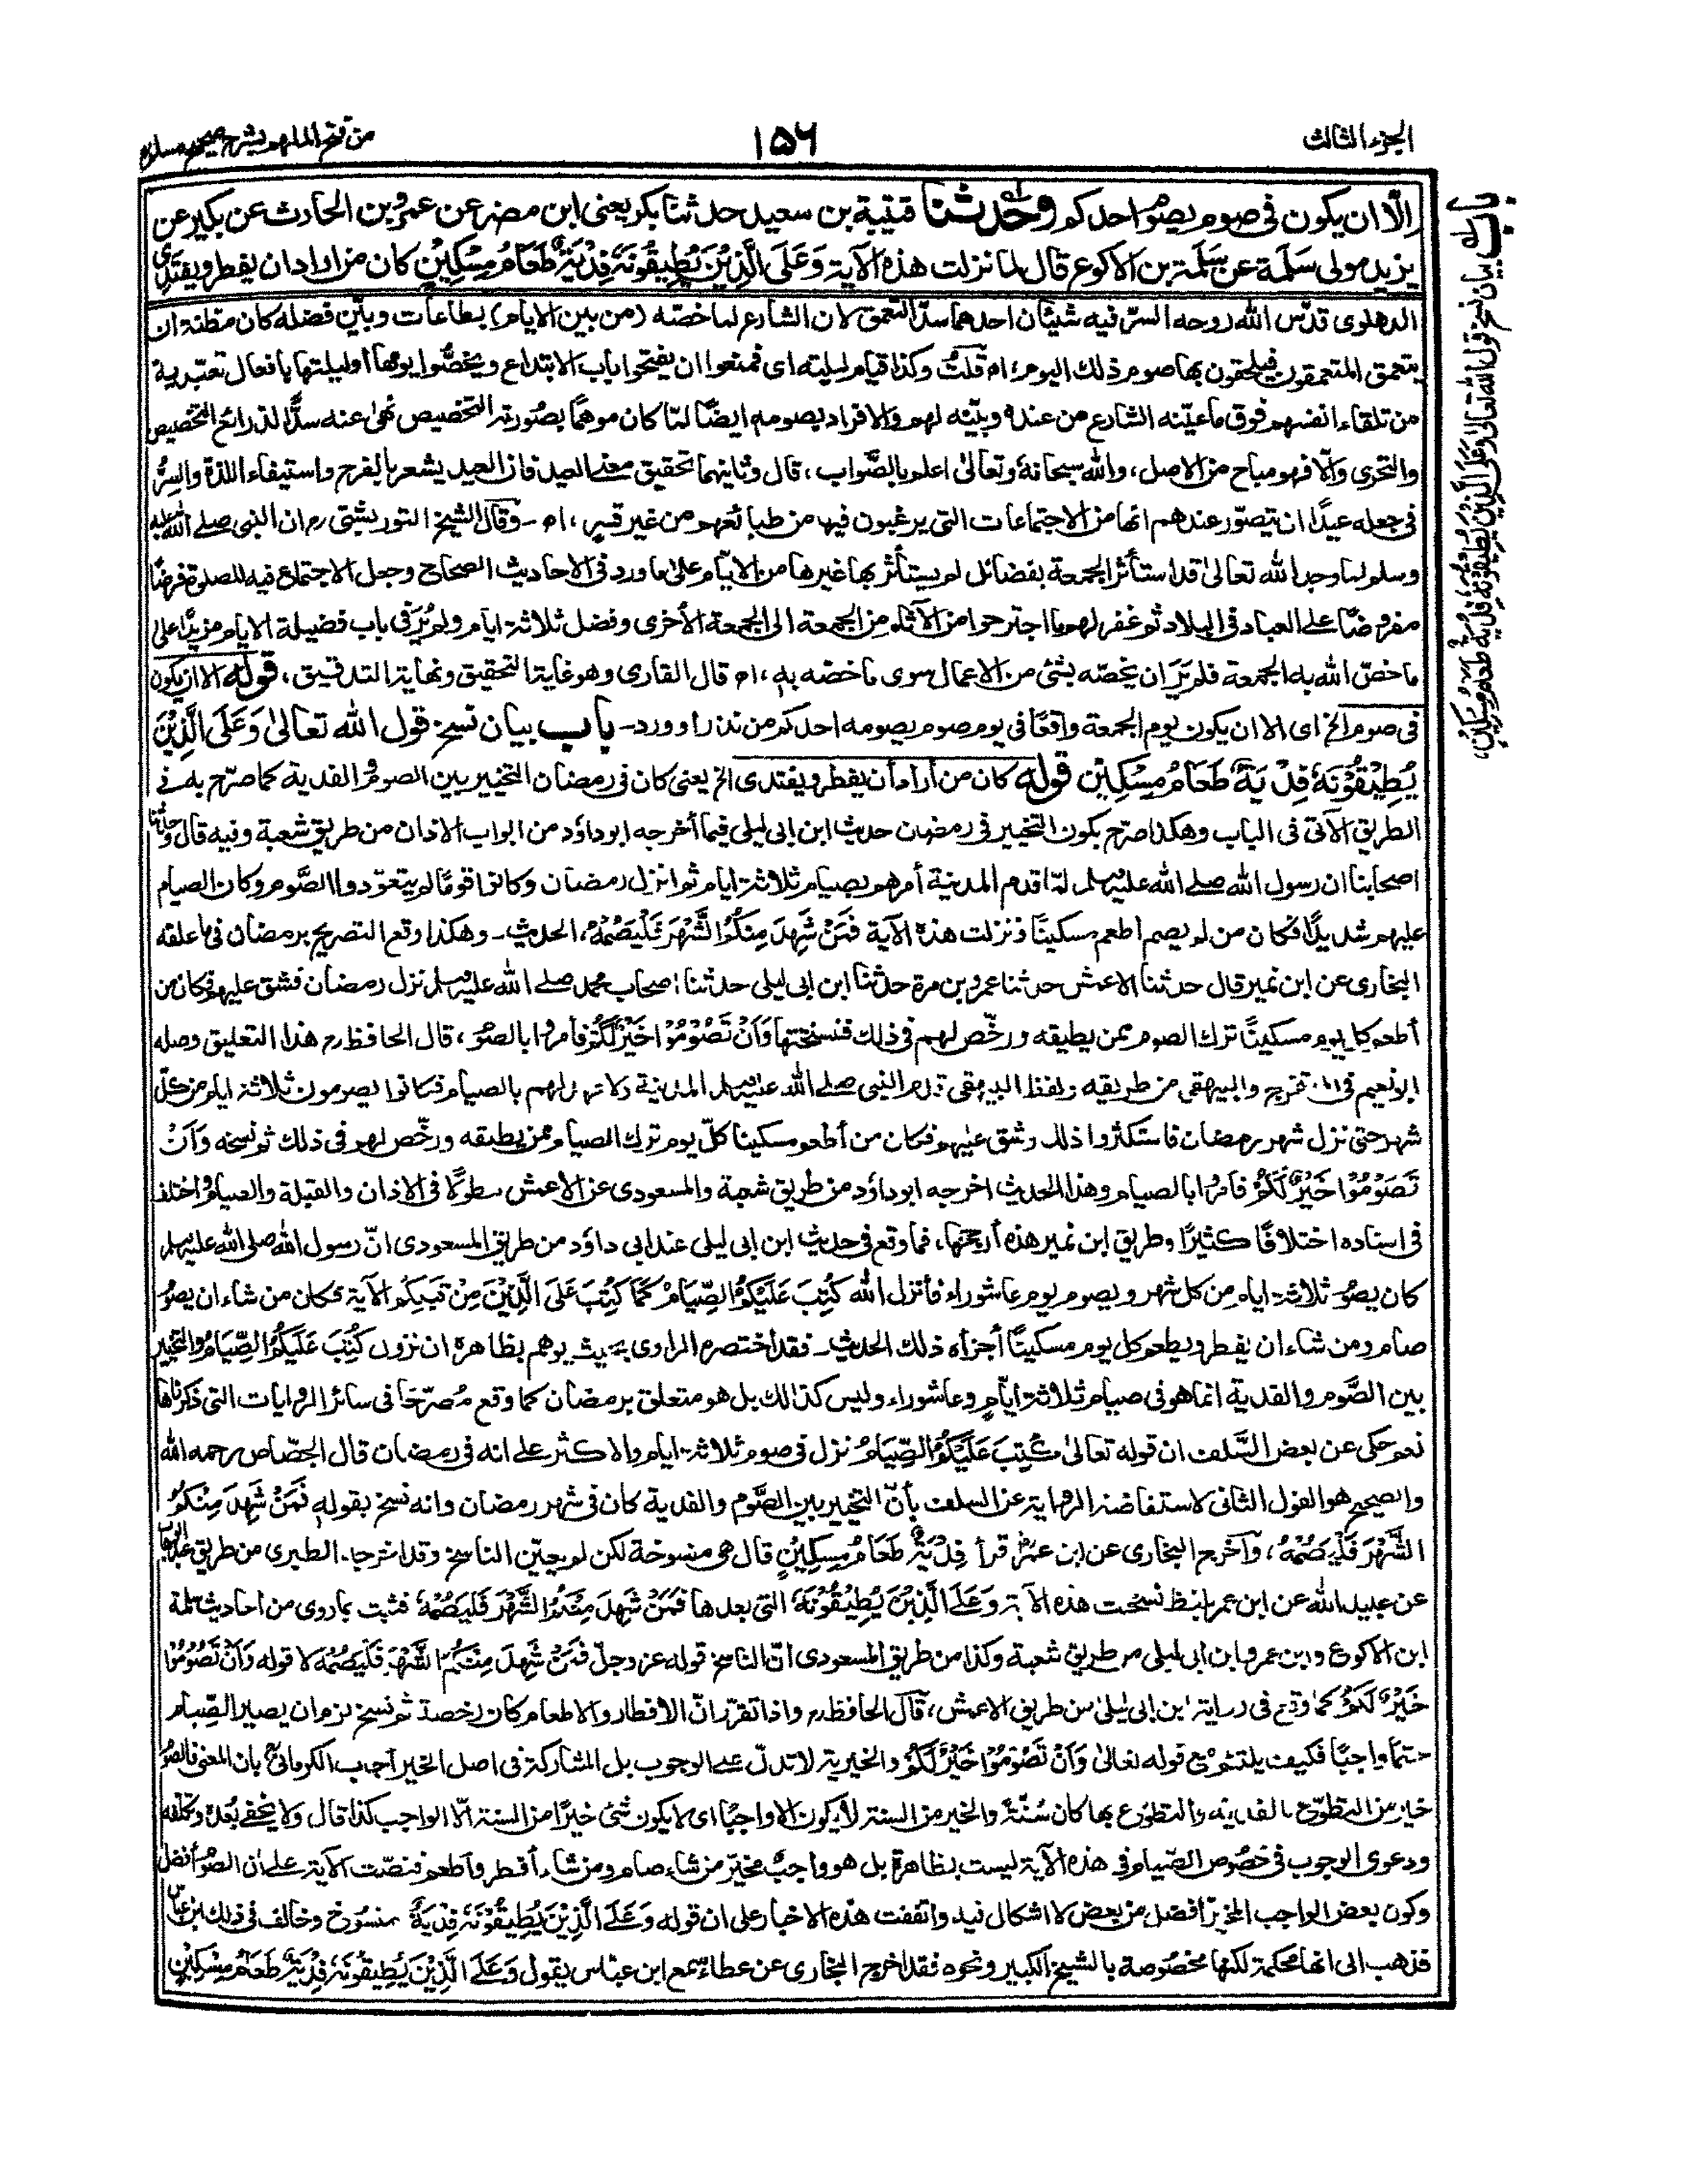 الجزء الثالث
١٥٦
من فتح الملهم بشرح صحيح مسلم
باب بيان نسخ قول الله تعالى وَعَلَى الَّذِيْنَ يُطِيْقُوْنَهٗ فِدْيَةٌ طَعَامُ مِسْكِيْنٍ،
اِلّا ان يكون فى صوم يصومُه احدكم وحدثنا قتيبة بن سعيد حدثنا بكر يعنى ابن مضر عن عمرو بن الحادث عن بكير عن
يزيد مولى سَلَمة عن سَلَمة بن الاكوع قال لما نزلت هذه الآية وَعَلَى الَّذِيْنَ يُطِيْقُوْنَهٗ فِدْيَةٌ طَعَامُ مِسْكِيْنٍ كان من اراد ان يفطر ويفتدى
الدهلوى قدّس الله روحه السرّ فيه شيئان احدهما سدّ التعمق لان الشارع لما خصّه (من بين الايام) بطاعات وبيّن فضله كان مظنة ان
يتعمق المتعمقون فيلحقون بها صوم ذلك اليوم، اه قلتُ وكذا قيام ليلته اى فمنعوا ان يفتحوا باب الابتداع ويخصّوا يومها او ليلتها بافعال تعبّدية
من تلقاء انفسهم فوق ما عيّنه الشارع من عنده وبيّنه لهم والافراد بصومه ايضًا لمّا كان موهمًا بصُورته التخصيص نهى عنه سدًّا لذرائع التخصيص
والتحرى والّا فهو مباح من الاصل، والله سبحانهٗ وتعالىٰ اعلم بالصَّواب، قال وثانيهما تحقيق معنى العيد فان العيد يشعر بالفرح واستيفاء اللذة والسِرُّ
فى جعله عيدًا ان يتصوّر عندهم انها من الاجتماعات التى يرغبون فيها من طبائعهم من غير قسرٍ، اه - وقال الشيخ التوربشتى رح ان النبى صلى الله عليه
وسلم لما وجد الله تعالىٰ قد استأثر الجمعة بفضائل لم يستأثر بها غيرها من الايّام على ما ورد فى الاحاديث الصحاح وجعل الاجتماع فيه للصلوة فرضًا
مفروضًا على العباد فى البلاد ثم غفر لهم ما اجترحوا من الآثام من الجمعة الى الجمعة الأخرى وفضل ثلاثة ايام ولم يُرَ فى باب فضيلة الايام مزيدًا على
ما خصّ الله به الجمعة فلم يَرَ ان يخصّه بشئ من الاعمال سوى ما خصّه به، اه قال القارى وهو غاية التحقيق ونهاية التدقيق، قوله الا ان يكون
فى صوم الخ اى الا ان يكون يوم الجمعة واقعًا فى يوم صوم يصومه احدكم من نذر او ورد - باب بيان نسخ قول الله تعالىٰ وَعَلَى الَّذِيْنَ
يُطِيْقُوْنَهٗ فِدْيَةٌ طَعَامُ مِسْكِيْنٍ قوله كان من أراد أن يفطر ويفتدى الخ يعنى كان فى رمضان التخيير بين الصوم و الفدية كما صرّح به فى
الطريق الآتى فى الباب وهكذا صرّح بكون التخيير فى رمضان حديث ابن ابى ليلى فيما أخرجه ابو داؤد من ابواب الاذان من طريق شعبة وفيه قال وحدثنا
اصحابنا ان رسول الله صلى الله عليه وسلم لمّا قدم المدينة أمرهم بصيام ثلاثة ايام ثم انزل رمضان وكانوا قومًا لم يتعوّدوا الصَّوم وكان الصيام
عليهم شديدًا فكان من لم يصم أطعم مسكينًا فنزلت هذه الآية فَمَنْ شَهِدَ مِنْكُمُ الشَّهْرَ فَلْيَصُمْهُ، الحديث - وهكذا وقع التصريح برمضان فى ما علقه
البخارى عن ابن نمير قال حدثنا الاعمش حدثنا عمرو بن مرة حدثنا ابن ابى ليلى حدثنا اصحاب محمد صلى الله عليه وسلم نزل رمضان فشق عليهم فكان من
أطعم كل يوم مسكينًا ترك الصوم ممن يطيقه ورخّص لهم فى ذلك فنسختها وَاَنْ تَصُوْمُوْا خَيْرٌ لَّكُمْ فأمروا بالصوم، قال الحافظ رح هذا التعليق وصله
ابو نعيم فى المستخرج والبيهقى من طريقه ولفظ البيهقى قدم النبى صلى الله عليه وسلم المدينة ولا عهد لهم بالصيام فكانوا يصومون ثلاثة ايام من كل
شهر حتى نزل شهر رمضان فاستكثروا ذلك وشق عليهم فكان من أطعم مسكينا كلّ يوم ترك الصيام ممن يطيقه ورخّص لهم فى ذلك ثم نسخه وَاَنْ
تَصُوْمُوْا خَيْرٌ لَّكُمْ فأمروا بالصيام وهذا الحديث اخرجه ابو داؤد من طريق شعبة والمسعودى عن الاعمش مطولًا فى الاذان والقبلة والصيام واختلف
فى اسناده اختلافًا كثيرًا وطريق ابن نمير هذه أرجحها، فما وقع فى حديث ابن ابى ليلى عند ابى داؤد من طريق المسعودى انّ رسول الله صلى الله عليه وسلم
كان يصوم ثلاثة ايام من كل شهر ويصوم يوم عاشوراء فأنزل الله كُتِبَ عَلَيْكُمُ الصِّيَامُ كَمَا كُتِبَ عَلَى الَّذِيْنَ مِنْ قَبْلِكُمْ الآية فكان من شاء ان يصوم
صام ومن شاء ان يفطر ويطعم كل يوم مسكينًا أجزاه ذلك الحديث - فقد اختصره الراوى بحيث يوهم بظاهره ان نزول كُتِبَ عَلَيْكُمُ الصِّيَامُ والتخيير
بين الصَّوم والفدية انما هو فى صيام ثلاثة ايّامٍ وعاشوراء وليس كذلك بل هو متعلق برمضان كما وقع مُصرّحًا فى سائر الروايات التى ذكرناها
نعم حكى عن بعض السَّلف ان قوله تعالىٰ كُتِبَ عَلَيْكُمُ الصِّيَامُ نزل فى صوم ثلاثة ايام والاكثر على انه فى رمضان قال الجصّاص رحمه الله
والصحيح هو القول الثانى لاستفاضة الرواية عن السلف بأنّ التخيير بين الصَّوم والفدية كان فى شهر رمضان وانه نسخ بقوله فَمَنْ شَهِدَ مِنْكُمُ
الشَّهْرَ فَلْيَصُمْهُ، وأخرج البخارى عن ابن عمرؓ قرأ فِدْيَةٌ طَعَامُ مِسْكِيْنٍ قال هى منسوخة لكن لم يعيّن الناسخ وقد اخرجه الطبرى من طريق عبد الوهاب
عن عبيد الله عن ابن عمر بلفظ نسخت هذه الآية وَعَلَى الَّذِيْنَ يُطِيْقُوْنَهٗ التى بعدها فَمَنْ شَهِدَ مِنْكُمُ الشَّهْرَ فَلْيَصُمْهُ فثبت بما روى من احاديث سلمة
ابن الاكوع وابن عمر وابن ابى ليلى من طريق شعبة وكذا من طريق المسعودى انّ الناسخ قوله عز وجلّ فَمَنْ شَهِدَ مِنْكُمُ الشَّهْرَ فَلْيَصُمْهُ لا قوله وَاَنْ تَصُوْمُوْا
خَيْرٌ لَّكُمْ كما وقع فى رواية ابن ابى ليلىٰ من طريق الاعمش، قال الحافظ رح واذا تقرر انّ الافطار والاطعام كان رخصة ثم نسخ لزم ان يصير الصِّيام
حتمًا واجبًا فكيف يلتئم مع قوله تعالىٰ وَاَنْ تَصُوْمُوْا خَيْرٌ لَّكُمْ والخيرية لا تدلّ على الوجوب بل المشاركة فى اصل الخير اجاب الكرمانىؒ بان المعنى فالصوم
خير من التطوّع بالفدية والتطوّع بها كان سُنّةً والخير من السنة لا يكون الا واجبًا اى لا يكون شئ خيرًا من السنة الّا الواجب كذا قال ولا يخفى بُعده وتكلّفه
ودعوى الوجوب فى خصُوص الصِّيام فى هذه الآية ليست بظاهرة بل هو واجبٌ مخيّر من شاء صام ومن شاء أفطر وأطعم فنصّت الآية على ان الصوم أفضل
وكون بعض الواجب المخيّر أفضل من بعض لا اشكال فيه واتفقت هذه الاخبار على ان قوله وَعَلَى الَّذِيْنَ يُطِيْقُوْنَهٗ فِدْيَةٌ منسُوخ وخالف فى ذلك ابن عباس
فذهب الى انها محكمة لكنها مخصُوصة بالشيخ الكبير ونحوه فقد اخرج البخارى عن عطاء سمع ابن عبّاس يقول وَعَلَى الَّذِيْنَ يُطِيْقُوْنَهٗ فِدْيَةٌ طَعَامُ مِسْكِيْنٍ